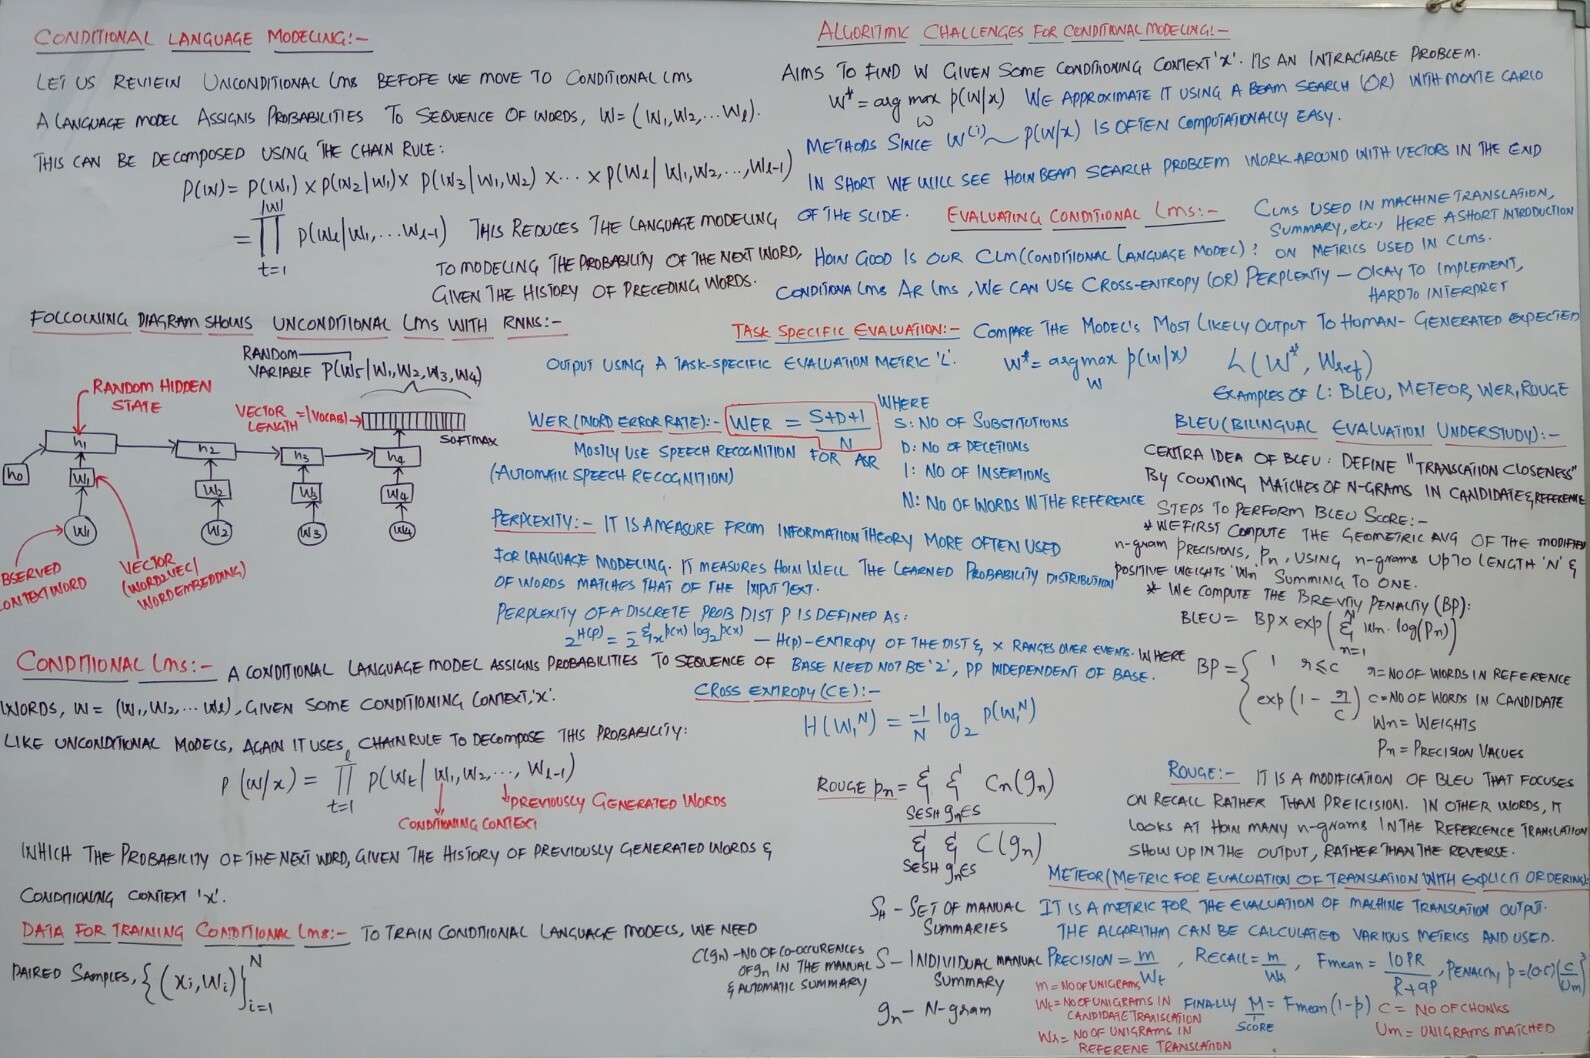 CONDITIONAL LANGUAGE MODELING:-
LET US REVIEW UNCONDITIONAL LMS BEFOFE WE MOVE TO CONDITIONAL LMS
A LANGUAGE MODEL ASSIGNS PROBABILITIES TO SEQUENCE OF WORDS, W = (W₁,W₂,...Wℓ).
THIS CAN BE DECOMPOSED USING THE CHAIN RULE:
P(W) = P(W₁) × P(W₂|W₁) × P(W₃|W₁,W₂) × ... × P(Wℓ|W₁,W₂,...,Wℓ-1)
|W|
= ∏ P(Wt|W₁,...Wt-1) THIS REDUCES THE LANGUAGE MODELING
t=1
TO MODELING THE PROBABILITY OF THE NEXT WORD,
GIVEN THE HISTORY OF PRECEDING WORDS.
FOLLOWING DIAGRAM SHOWS UNCONDITIONAL LMS WITH RNNS:-
RANDOM
VARIABLE P(W₅|W₁,W₂,W₃,W₄)
RANDOM HIDDEN
STATE
VECTOR = |VOCAB|
LENGTH
SOFTMAX
h₀ h₁ h₂ h₃ h₄
W₁ W₂ W₃ W₄
W₁ W₂ W₃ W₄
BSERVED
ONTEXT WORD
VECTOR
(WORD2VEC/
WORD EMBEDDING)
CONDITIONAL LMS:- A CONDITIONAL LANGUAGE MODEL ASSIGNS PROBABILITIES TO SEQUENCE OF
WORDS, W = (W₁,W₂,...Wℓ), GIVEN SOME CONDITIONING CONTEXT,'X'.
LIKE UNCONDITIONAL MODELS, AGAIN IT USES CHAIN RULE TO DECOMPOSE THIS PROBABILITY:
ℓ
P(W/x) = ∏ P(Wt|W₁,W₂,...,Wℓ-1)
t=1
PREVIOUSLY GENERATED WORDS
CONDITIONING CONTEXT
WHICH THE PROBABILITY OF THE NEXT WORD, GIVEN THE HISTORY OF PREVIOUSLY GENERATED WORDS &
CONDITIONING CONTEXT 'x'.
DATA FOR TRAINING CONDITIONAL LMS:- TO TRAIN CONDITIONAL LANGUAGE MODELS, WE NEED
PAIRED SAMPLES, {(xi,Wi)}ᴺi=1
ALGORITMIC CHALLENGES FOR CONDITIONAL MODELING:-
AIMS TO FIND W GIVEN SOME CONDITIONING CONTEXT 'x'. ITS AN INTRACTABLE PROBLEM.
W* = arg max P(W/x) WE APPROXIMATE IT USING A BEAM SEARCH (OR) WITH MONTE CARLO
W
METHODS SINCE W⁽ⁱ⁾ ~ P(W/x) IS OFTEN COMPUTATIONALLY EASY.
IN SHORT WE WILL SEE HOW BEAM SEARCH PROBLEM WORK AROUND WITH VECTORS IN THE END
OF THE SLIDE.
EVALUATING CONDITIONAL LMS:- CLMS USED IN MACHINE TRANSLATION,
SUMMARY, etc., HERE A SHORT INTRODUCTION
ON METRICS USED IN CLMS.
HOW GOOD IS OUR CLM (CONDITIONAL LANGUAGE MODEL)?
CONDITIONA LMS AR LMS, WE CAN USE CROSS-ENTROPY (OR) PERPLEXITY – OKAY TO IMPLEMENT,
HARD TO INTERPRET
TASK SPECIFIC EVALUATION:- COMPARE THE MODEL'S MOST LIKELY OUTPUT TO HUMAN-GENERATED EXPECTED
OUTPUT USING A TASK-SPECIFIC EVALUATION METRIC 'L'. W* = argmax P(W/x) L(W*, Wref)
W
EXAMPLES OF L: BLEU, METEOR, WER, ROUGE
WER (WORD ERROR RATE):- WER = S+D+I
N
WHERE
S: NO OF SUBSTITUTIONS
D: NO OF DELETIONS
I: NO OF INSERTIONS
N: NO OF WORDS IN THE REFERENCE
MOSTLY USE SPEECH RECOGNITION FOR ASR
(AUTOMATIC SPEECH RECOGNITION)
PERPLEXITY:- IT IS A MEASURE FROM INFORMATION THEORY MORE OFTEN USED
FOR LANGUAGE MODELING. IT MEASURES HOW WELL THE LEARNED PROBABILITY DISTRIBUTION
OF WORDS MATCHES THAT OF THE INPUT TEXT.
PERPLEXITY OF A DISCRETE PROB DIST P IS DEFINED AS:
2^H(P) = 2^-Σx P(x) log₂ P(x) – H(P)-ENTROPY OF THE DIST & x RANGES OVER EVENTS. WHERE
BASE NEED NOT BE '2', PP INDEPENDENT OF BASE.
CROSS ENTROPY (CE):-
H(W₁ᴺ) = -1/N log₂ P(W₁ᴺ)
BLEU (BILINGUAL EVALUATION UNDERSTUDY):-
CENTRA IDEA OF BLEU: DEFINE "TRANSLATION CLOSENESS"
BY COUNTING MATCHES OF N-GRAMS IN CANDIDATE & REFERENCE
STEPS TO PERFORM BLEU SCORE:-
* WE FIRST COMPUTE THE GEOMETRIC AVG OF THE MODIFIED
n-gram PRECISIONS, Pn, USING n-grams UP TO LENGTH 'N' &
POSITIVE WEIGHTS 'Wn' SUMMING TO ONE.
* WE COMPUTE THE BREVTIY PENALTY (BP):
BLEU = BP × exp(Σ Wn. log(Pn))
N
n=1
BP = { 1 r≤c
exp(1 - r/c)
r = NO OF WORDS IN REFERENCE
C = NO OF WORDS IN CANDIDATE
Wn = WEIGHTS
Pn = PRECISION VALUES
ROUGE:- IT IS A MODIFICATION OF BLEU THAT FOCUSES
ON RECALL RATHER THAN PREICISION. IN OTHER WORDS, IT
LOOKS AT HOW MANY n-grams IN THE REFERCENCE TRANSLATION
SHOW UP IN THE OUTPUT, RATHER THAN THE REVERSE.
ROUGE Pn = Σ Σ Cn(gn)
SESH gnES
Σ Σ C(gn)
SESH gnES
SH – SET OF MANUAL
SUMMARIES
S – INDIVIDUAL MANUAL
SUMMARY
gn – N-gram
C(gn) – NO OF CO-OCCURENCES
OF gn IN THE MANUAL
& AUTOMATIC SUMMARY
METEOR (METRIC FOR EVALUATION OF TRANSLATION WITH EXPLICIT ORDERING)
IT IS A METRIC FOR THE EVALUATION OF MACHINE TRANSLATION OUTPUT.
THE ALGORITHM CAN BE CALCULATED VARIOUS METRICS AND USED.
PRECISION = m/Wt, RECALL = m/Wr, Fmean = 10PR/R+9P, PENALTY, P = (0.5)(C/Um)³
m = NO OF UNIGRAMS
Wt = NO OF UNIGRAMS IN
CANDIDATE TRANSLATION
Wr = NO OF UNIGRAMS IN
REFERENE TRANSLATION
FINALLY M = Fmean (1-P)
SCORE
C = NO OF CHONKS
Um = UNIGRAMS MATCHED